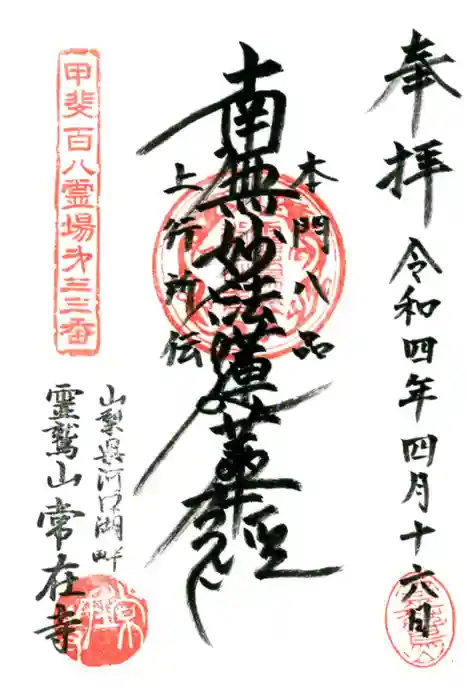 奉拝
令和四年四月十六日
本門八品
南無妙法蓮華経
上行所伝
甲斐百八霊場第三三番
山梨県河口湖畔
霊鷲山常在寺